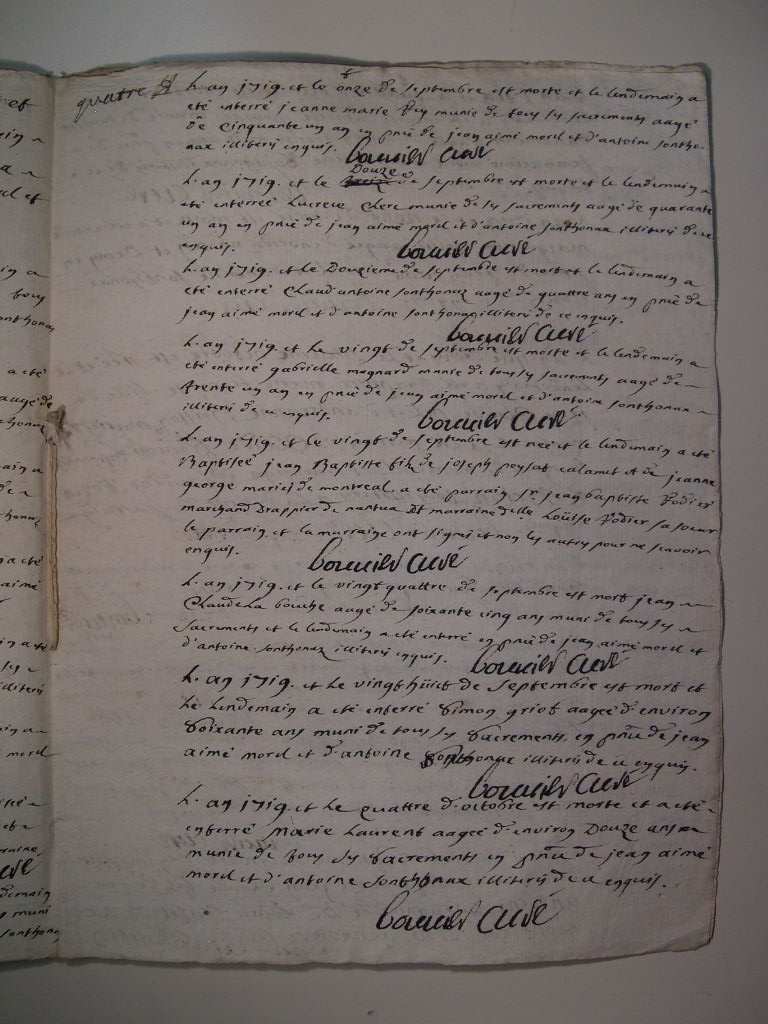 quatre
L an 1719. et le onze de septembre est morte et le lendemain a
eté enterré jeanne marie munie de tous ses sacrements aagé
de Cinquante un an en pnce de jean aimé morel et d'antoine sontho-
nax illiterés enquis. Bouvier Curé
Douze
L. an 1719. et le de septembre est morte et le lendemain a
eté enterreé Lucrece Clerc munie de ses sacrements aagé de quarante
un an en pnce de jean aimé morel et d'antoine sonthonax illiterés de ce
enquis. Bouvier Curé
L. an 1719. et le Douzieme de septembre est mort et le lendemain a
eté enterré Claud'antoine sonthonax aagé de quattre ans en pnce de
jean aimé morel et d'antoine sonthonax illiterés de ce enquis.
Bouvier Curé
L. an 1719. et le vingt de septembre est morte et le lendemain a
eté enterré gabrielle mognard munie de tous ses sacrements aagé de
trente un an en pnce de jean aimé morel et d'antoine sonthonax
illiterés de ce enquis. Bouvier Curé
L. an 1719. et le vingt de septembre est neé et le lendemain a eté
Baptiseé jean Baptiste fils de joseph calamet et de jeanne
george mariés de montreal. a eté parrain sr. jean baptiste
marchand Drappier de nantua et marraine delle. Loüise sa soeur
le parrain et la marraine ont signé et non les autres pour ne scavoir
enquis. Bouvier Curé
L. an 1719. et le vingt quattre de septembre est mort jean
Claude La bouche aagé de soixante cinq ans muni de tous ses
sacrements et le lendemain a eté enterré en pnce de jean aimé morel et
d'antoine sonthonax illiterés enquis. Bouvier Curé
L. an 1719. et le vingthüit de septembre est mort et
Le Lendemain a eté enterré simon griot aageé d'environ
soixante ans muni de tous ses sacrements en pnce de jean
aimé morel et d'antoine sonthonax illiterés de ce enquis.
Bouvier Curé
L. an 1719. et Le quattre d'octobre est morte et a eté
enterré Marie Laurent aageé d'environ Douze ans
munie de tous ses sacrements en pnce de jean aimé
morel et d'antoine sonthonax illiterés de ce enquis.
Bouvier Curé